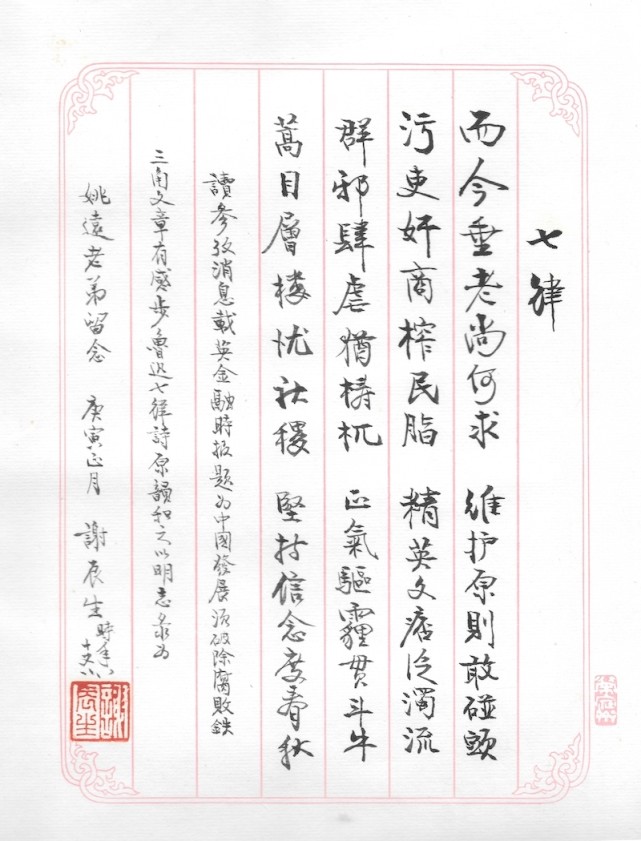 七律
而今垂老尚何求 维护原則敢碰頭
污吏奸商榨民脂 精英文痞泛濁流
群邪肆虐猶梼杌 正氣驅霾貫斗牛
蒿目層樓忧社稷 堅持信念度春秋
讀參攷消息載英金融時报題为中國發展須破除腐敗鉄
三角文章有感步魯迅七律詩原韻和之以明志录为
姚遠老弟留念 庚寅正月 謝辰生 時年八十八
謝辰生